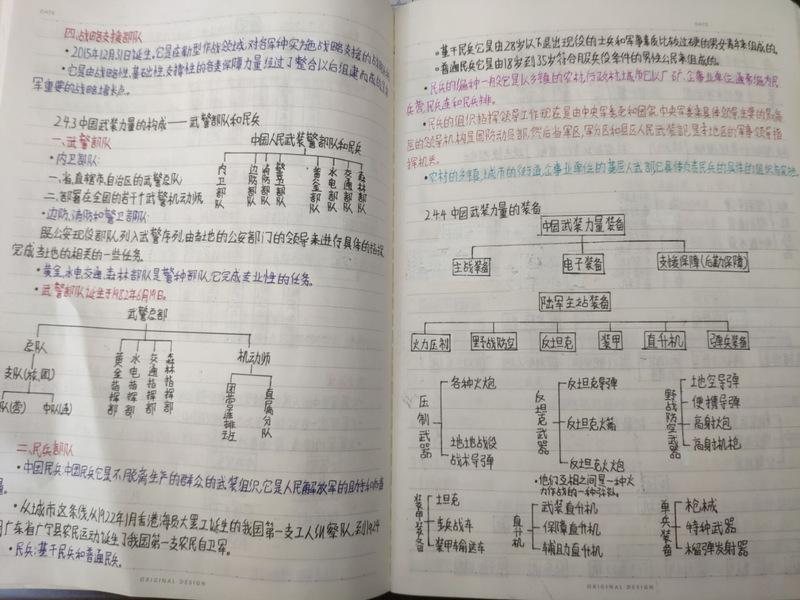 四.战略支援部队
·2015年12月31日诞生。它是在新型作战领域,对各军种实施战略支援的战略
·它是由战略性、基础性、支撑性的各类保障力量经过了整合以后组建而成的,是
军重要的战略增长点。
2.4.3中国武装力量的构成——武警部队和民兵
一.武警部队
中国人民武装警察部队和民兵
·内卫部队:
内卫部队
边防部队
消防部队
警卫部队
黄金部队
水电部队
交通部队
森林部队
一.省.直辖市.自治区的武警总队;
二.部署在全国的若干个武警机动师
·边防.消防和警卫部队:
既公安现役部队列入武警序列.由当地的公安部门的领导来进行具体的指挥,
完成当地的相关的一些任务。
·黄金.水电.交通.森林部队是警种部队,它完成专业性的任务。
·武警部队诞生于1982年6月19日。
武警总部
总队
黄金指挥部
水电指挥部
交通指挥部
森林指挥部
机动师
支队(旅.团)
队(营)
中队(连)
团营连排班
直属分队
二.民兵部队
·中国民兵:中国民兵它是不脱离生产的群众的武装组织,它是人民解放军的助手和后备
·从城市这条线,从1922年1月香港海员大罢工诞生的我国第一支工人纠察队,到1924
广东省广宁县农民运动诞生了我国第一支农民自卫军。
·民兵:基干民兵和普通民兵。
ORIGINAL DESIGN
DATE
·基干民兵它是由28岁以下退出现役的士兵和军事素质比较过硬的男女青年来组成的。
·普通民兵它是由18岁到35岁符合服兵役条件的男性公民来组成的。
·民兵的编种一般它是以乡镇的农村,行政村,城市它以厂矿.企事业单位,通常编为民
兵营,民兵连和民兵排。
·民兵的组织指挥领导工作现在是由中央军委和国务
区的领导机构是国防动员部,然后省军区,军分区和县区人民武装部,是本地区的军事领导指
挥机关。
·农村的乡镇,城市的街道,企事业单位的基层人武部它具体负责民兵的具体的组织与实施。
2.4.4 中国武装力量的装备
中国武装力量装备
主战装备
电子装备
支援保障(后勤保障)
陆军主战装备
火力压制
野战防空
反坦克
装甲
直升机
单兵装备
压制武器
各种火炮
地地战役战术导弹
反坦克武器
反坦克导弹
反坦克火箭
反坦克火炮
·他们互相之间是一种火
力作战的一种弥补。
野战防空武器
地空导弹
便携导弹
高射火炮
高射机枪
装甲装备
土坦克
步兵战车
装甲输送车
直升机
武装直升机
保障直升机
辅助直升机
单兵装备
枪械
特种武器
榴弹发射器
ORIGINAL DESIGN